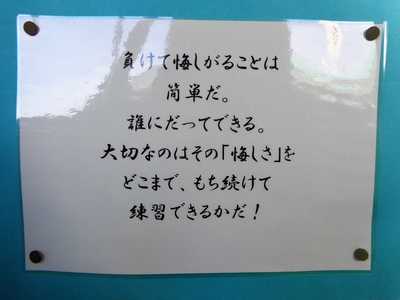 負けて悔しがることは
簡単だ。
誰にだってできる。
大切なのはその「悔しさ」を
どこまで、もち続けて
練習できるかだ！